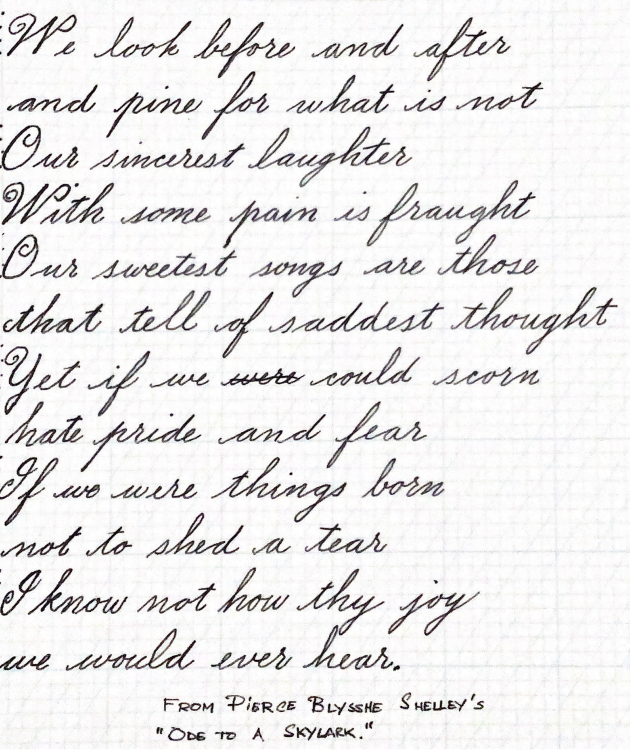 We look before and after
and pine for what is not
Our sincerest laughter
With some pain is fraught
Our sweetest songs are those
that tell of saddest thought
Yet if we were could scorn
hate pride and fear
If we were things born
not to shed a tear
I know not how thy joy
we would ever hear.
FROM PIERCE BLYSSHE SHELLEY'S
"ODE TO A SKYLARK."